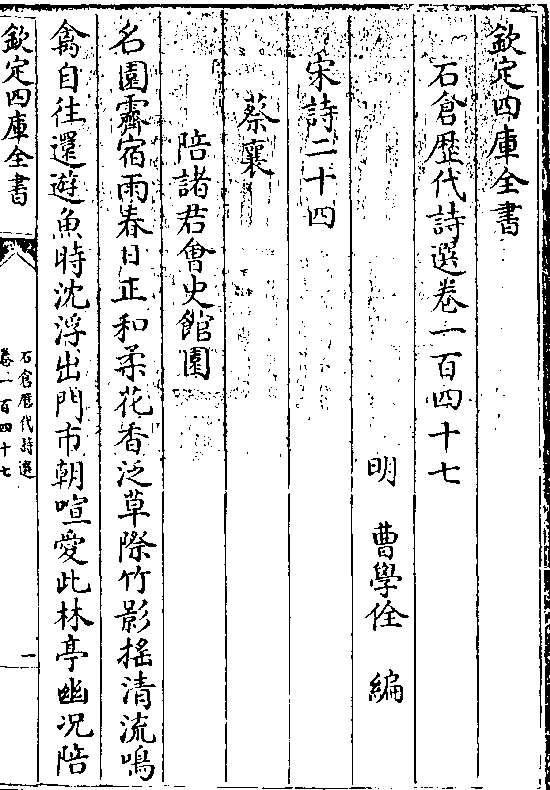 欽定四庫全書
石倉歴代詩選卷一百四十七
明 曹學佺 編
宋詩二十四
蔡襄
陪諸君會史館園
名園霽宿雨春日正和柔花香泛草際竹影揺清流鳴
禽自往還遊魚時沈浮出門市朝喧愛此林亭幽况陪
欽定四庫全書
石倉歴代詩選
卷一百四十七
一